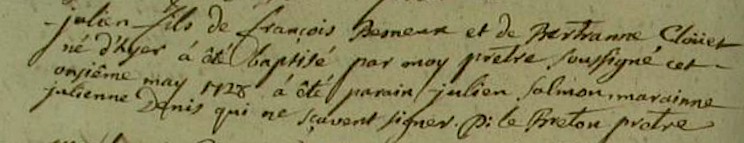 julien fils de françois Besneux et de Bertranne Cloüet
né d'hyer á êté baptisé par moy prêtre soussigné cet
onsiême may 1728 á êté parain julien salmon, marainne
julienne Denis qui ne sçavent signer. P: le Breton prêtre